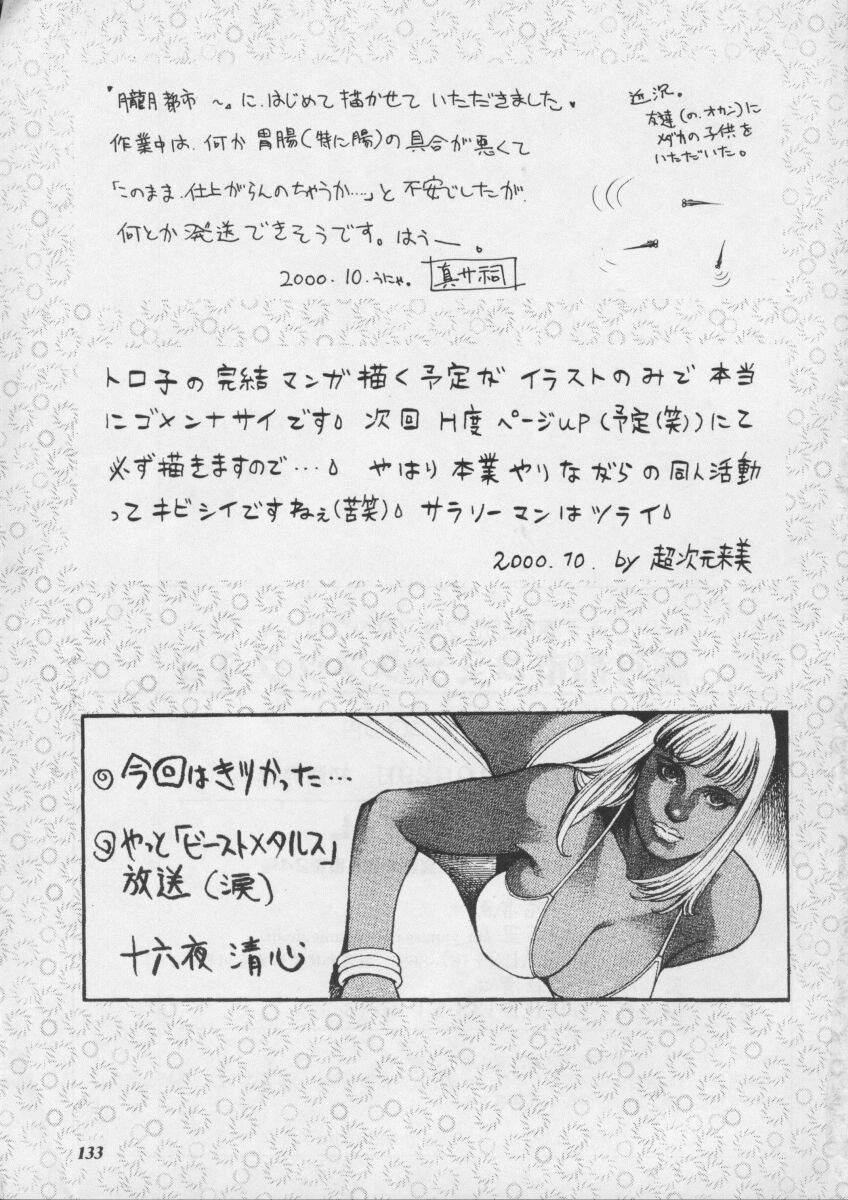 『朧月都市 〜』に、はじめて描かせて いただきました。
作業中は、何か 胃腸(特に腸)の 具合が悪くて
「このまま、仕上がらんのちゃうか…」と 不安でしたが、
何とか 発送できそうです。はぅー。
2000.10.うにゃ。 真サ祠
近況。
友達(の、オカン)に
メダカの子供を
いただいた。
トロ子の完結マンガ描く予定がイラストのみで本当
にゴメンナサイです。次回 H度 ページup(予定(笑))にて
必ず描きますので…。やはり本業やりながらの同人活動
ってキビシイですねぇ(苦笑)。サラリーマンはツライ。
2000.10. by 超次元来美
◎今回はきつかった…
◎やっと「ビーストメタルス」
放送(涙)
十六夜 清心
133